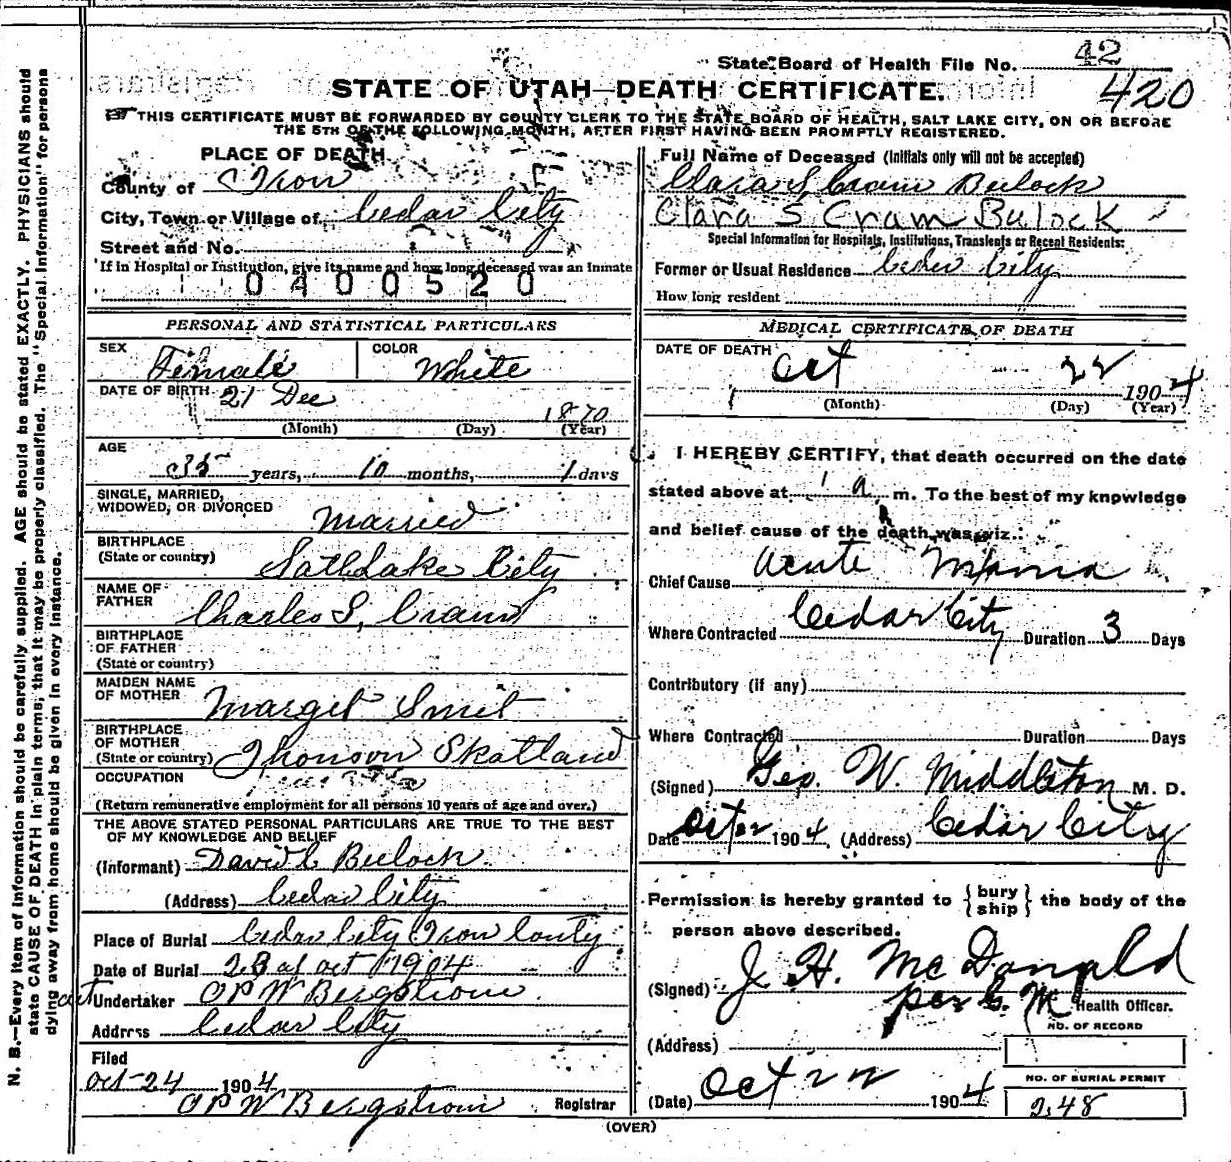 State Board of Health File No. 42
420
STATE OF UTAH—DEATH CERTIFICATE.
THIS CERTIFICATE MUST BE FORWARDED BY COUNTY CLERK TO THE STATE BOARD OF HEALTH, SALT LAKE CITY, ON OR BEFORE
THE 5TH OF THE FOLLOWING MONTH, AFTER FIRST HAVING BEEN PROMPTLY REGISTERED.
N. B.—Every item of information should be carefully supplied. AGE should be stated EXACTLY. PHYSICIANS should
state CAUSE OF DEATH in plain terms, that it may be properly classified. The "Special Information" for persons
dying away from home should be given in every instance.
PLACE OF DEATH
County of Iron
City, Town or Village of Cedar City
Street and No.
If in Hospital or Institution, give its name and how long deceased was an inmate
0400520
PERSONAL AND STATISTICAL PARTICULARS
SEX Female COLOR White
DATE OF BIRTH 21 Dec 1870
(Month) (Day) (Year)
AGE
35 years, 10 months, 1 days
SINGLE, MARRIED,
WIDOWED, OR DIVORCED Married
BIRTHPLACE
(State or country) Sathlake City
NAME OF
FATHER Charles S, Cram
BIRTHPLACE
OF FATHER
(State or country)
MAIDEN NAME
OF MOTHER Marget Smit
BIRTHPLACE
OF MOTHER
(State or country) Skotland
OCCUPATION
(Return remunerative employment for all persons 10 years of age and over.)
THE ABOVE STATED PERSONAL PARTICULARS ARE TRUE TO THE BEST
OF MY KNOWLEDGE AND BELIEF
(Informant) David C Bulock
(Address) Cedar City
Place of Burial Cedar City Iron Conty
Date of Burial 23 of oct 1904
act Undertaker O P W Bergstrom
Address Cedar City
Filed
Oct-24 1904
O P W Bergstrom Registrar
Full Name of Deceased (Initials only will not be accepted)
Clara S Cram Bulock
Clara S Cram Bulock
Special Information for Hospitals, Institutions, Transients or Recent Residents:
Former or Usual Residence Cedar City
How long resident
MEDICAL CERTIFICATE OF DEATH
DATE OF DEATH
Oct 22 1904
(Month) (Day) (Year)
I HEREBY CERTIFY, that death occurred on the date
stated above at 1 a. m. To the best of my knowledge
and belief cause of the death was viz.:
Chief Cause Acute Mania
Where Contracted Cedar City Duration 3 Days
Contributory (if any)
Where Contracted Duration Days
(Signed) Geo. W. Middleton M. D.
Date Oct 22 1904 (Address) Cedar City
Permission is hereby granted to { bury ship } the body of the
person above described.
(Signed) J. H. McDonald
per C. M Health Officer.
NO. OF RECORD
(Address)
NO. OF BURIAL PERMIT
(Date) Oct 22 1904 248
(OVER)